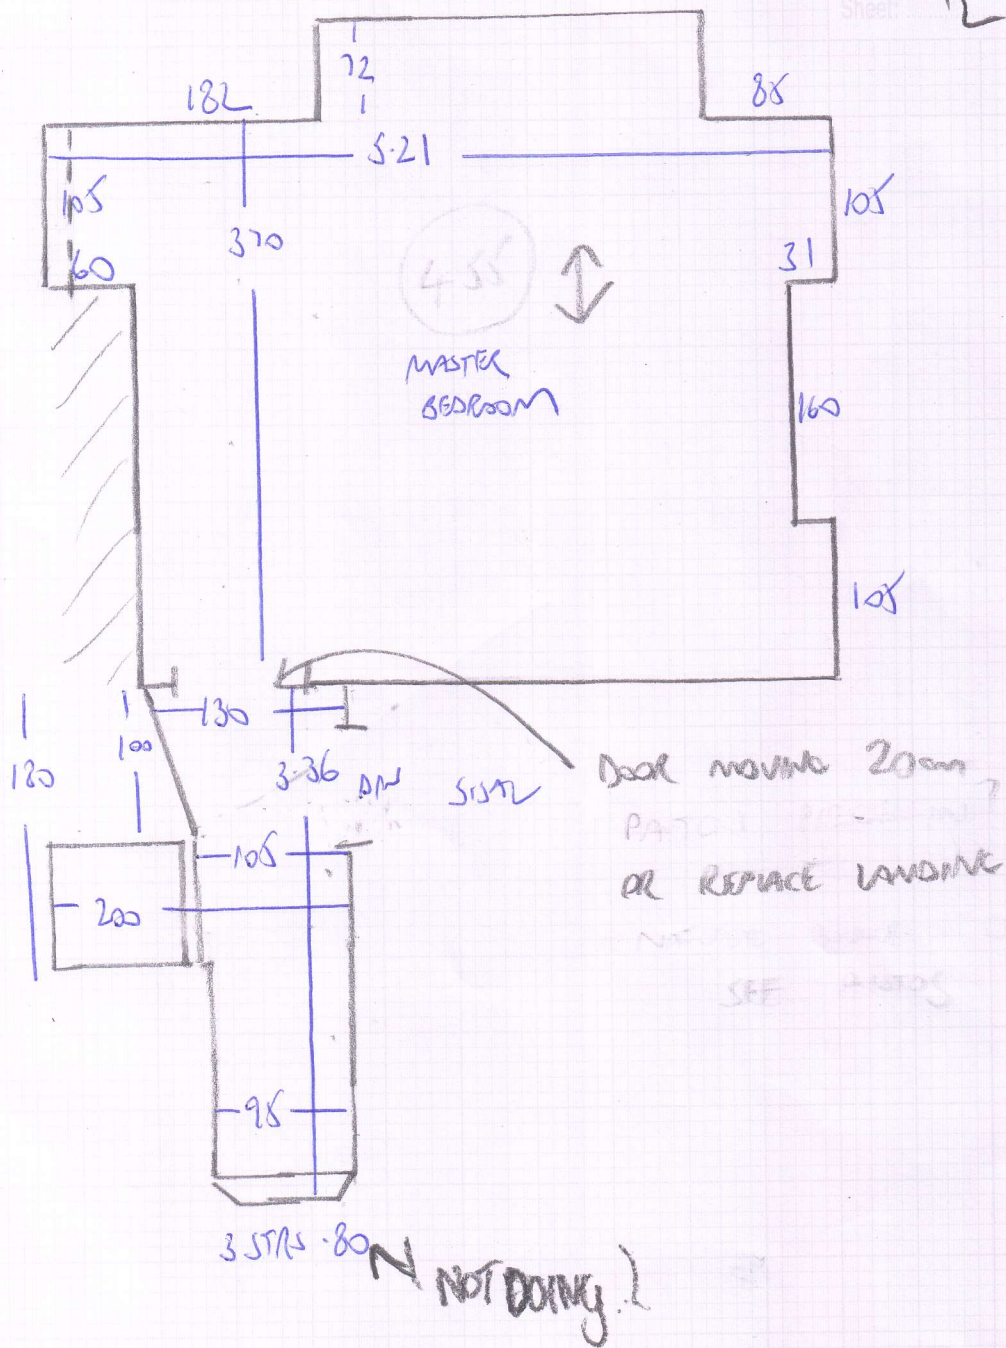 Sheet:
12
72
182
85
5.21
105
105
370
60
31
4.55
MASTER
BEDROOM
160
105
130
100
180
3.36
SISAL
DOOR MOVING 20cm
105
OR REPLACE LANDING
200
SEE PHOTOS
95
3 STRS .80
NOT DOING!